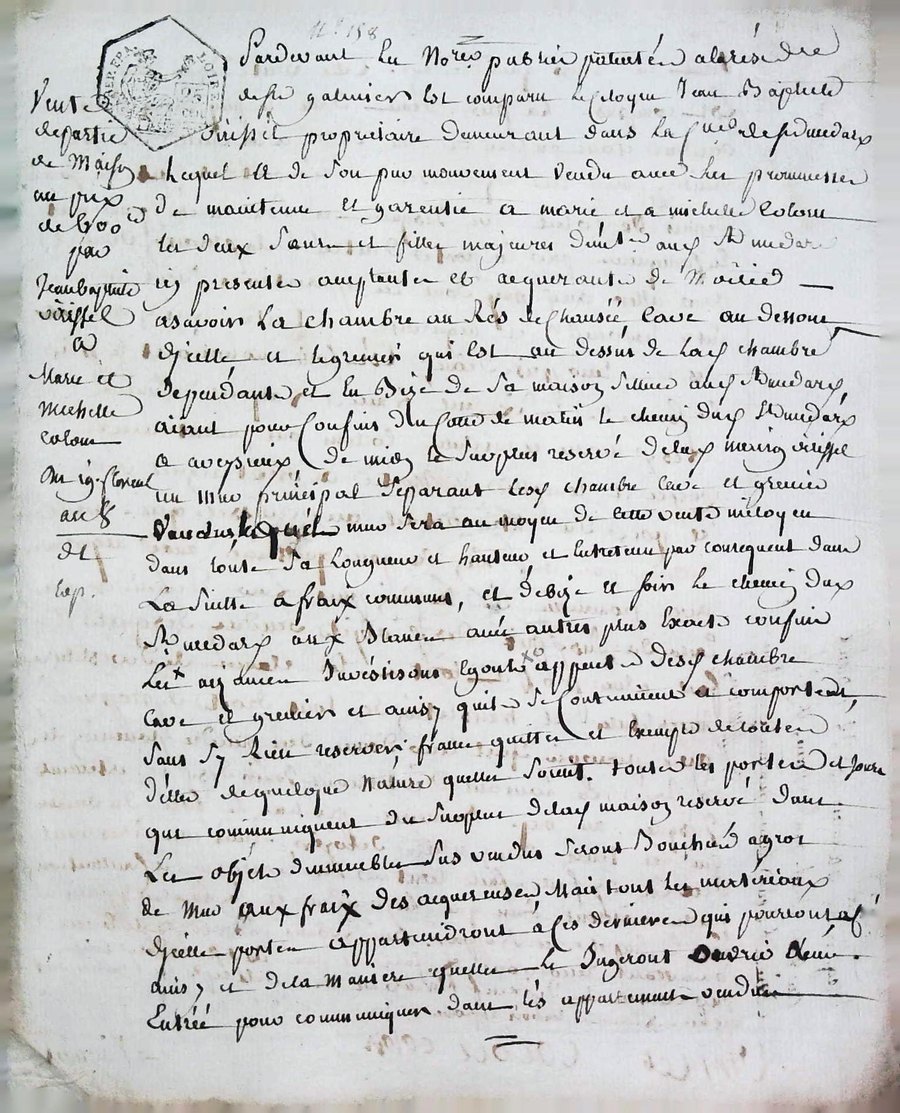 N° 158
Pardevant les Nores publics patentés a la résidce
de St galmier Est comparu le Citoyen Jean Baptiste
Virissel propriétaire demeurant dans la Cne de St medard
Lequel a de son pur mouvement Vendu avec les promesses
de maintenue Et garentie a marie et a michelle Colom
les deux sœurs et filles majeures aud St medard
icy presentes acceptantes et acquerantes de Moitié
asavoir La chambre au Rés de chausée, cave au dessous
d'icelle et le grenier qui Est au dessus de lad chambre
dependante et En Bize de sa maison située aud St medard
aiant pour Confins du Cotté de matin le chemin dud St medard
a aveysieux, de midy le surplus reservé de lad maison virissel
un mur principal separant lesd chambre cave et grenier
Vendus lequel mur sera au moyen de cette vente mitoyen
dans toute sa Longueur et hauteur, et Entretenu par consequent dans
La suitte a fraix communs, et de bize et soir le chemin dud
St medard aux Blancs avec autres plus Exacts confins
Les aizances Investisons Egouts apptces desd chambre
Cave et grenier et ainsy quils se Continuent et comportent,
sans s'y Rien reserver, francs quittes et Exempts de toutes
dettes de quelque Nature quelles soient. toutes les portes et jours
qui communiquent du surplus de lad maison reservé dans
Les objets d'immeubles sus vendus seront Bouchés agrot
de Mur aux fraix des acquereuses, Mais tous les materiaux
d'icelles portes appartiendront à ces dernieres qui pourront
ainsy et de la maniere quelles le Jugeront ouvrir
Entrée pour communiquer dans les appartements vendus
Vente
de partie
de Maison
au prix
de 600
par
Jean Baptiste
virissel
a
Marie et
Michelle
Colom
Du 19 floreal
an 8
dt
Exp.